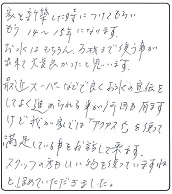 家を新築した時につけてもらい
もう14〜15年になります。
お水はもちろん、お風呂まで使う事が
出来て大変良かったと思います。
最近スーパーなどで良くお水の宣伝を
してよく進められる事が何回か有ります
けど我が家では「アクアス」を使って
満足している事をお話して来ます。
スタッフの方も良い物を使っていますね
とほめていただきました。